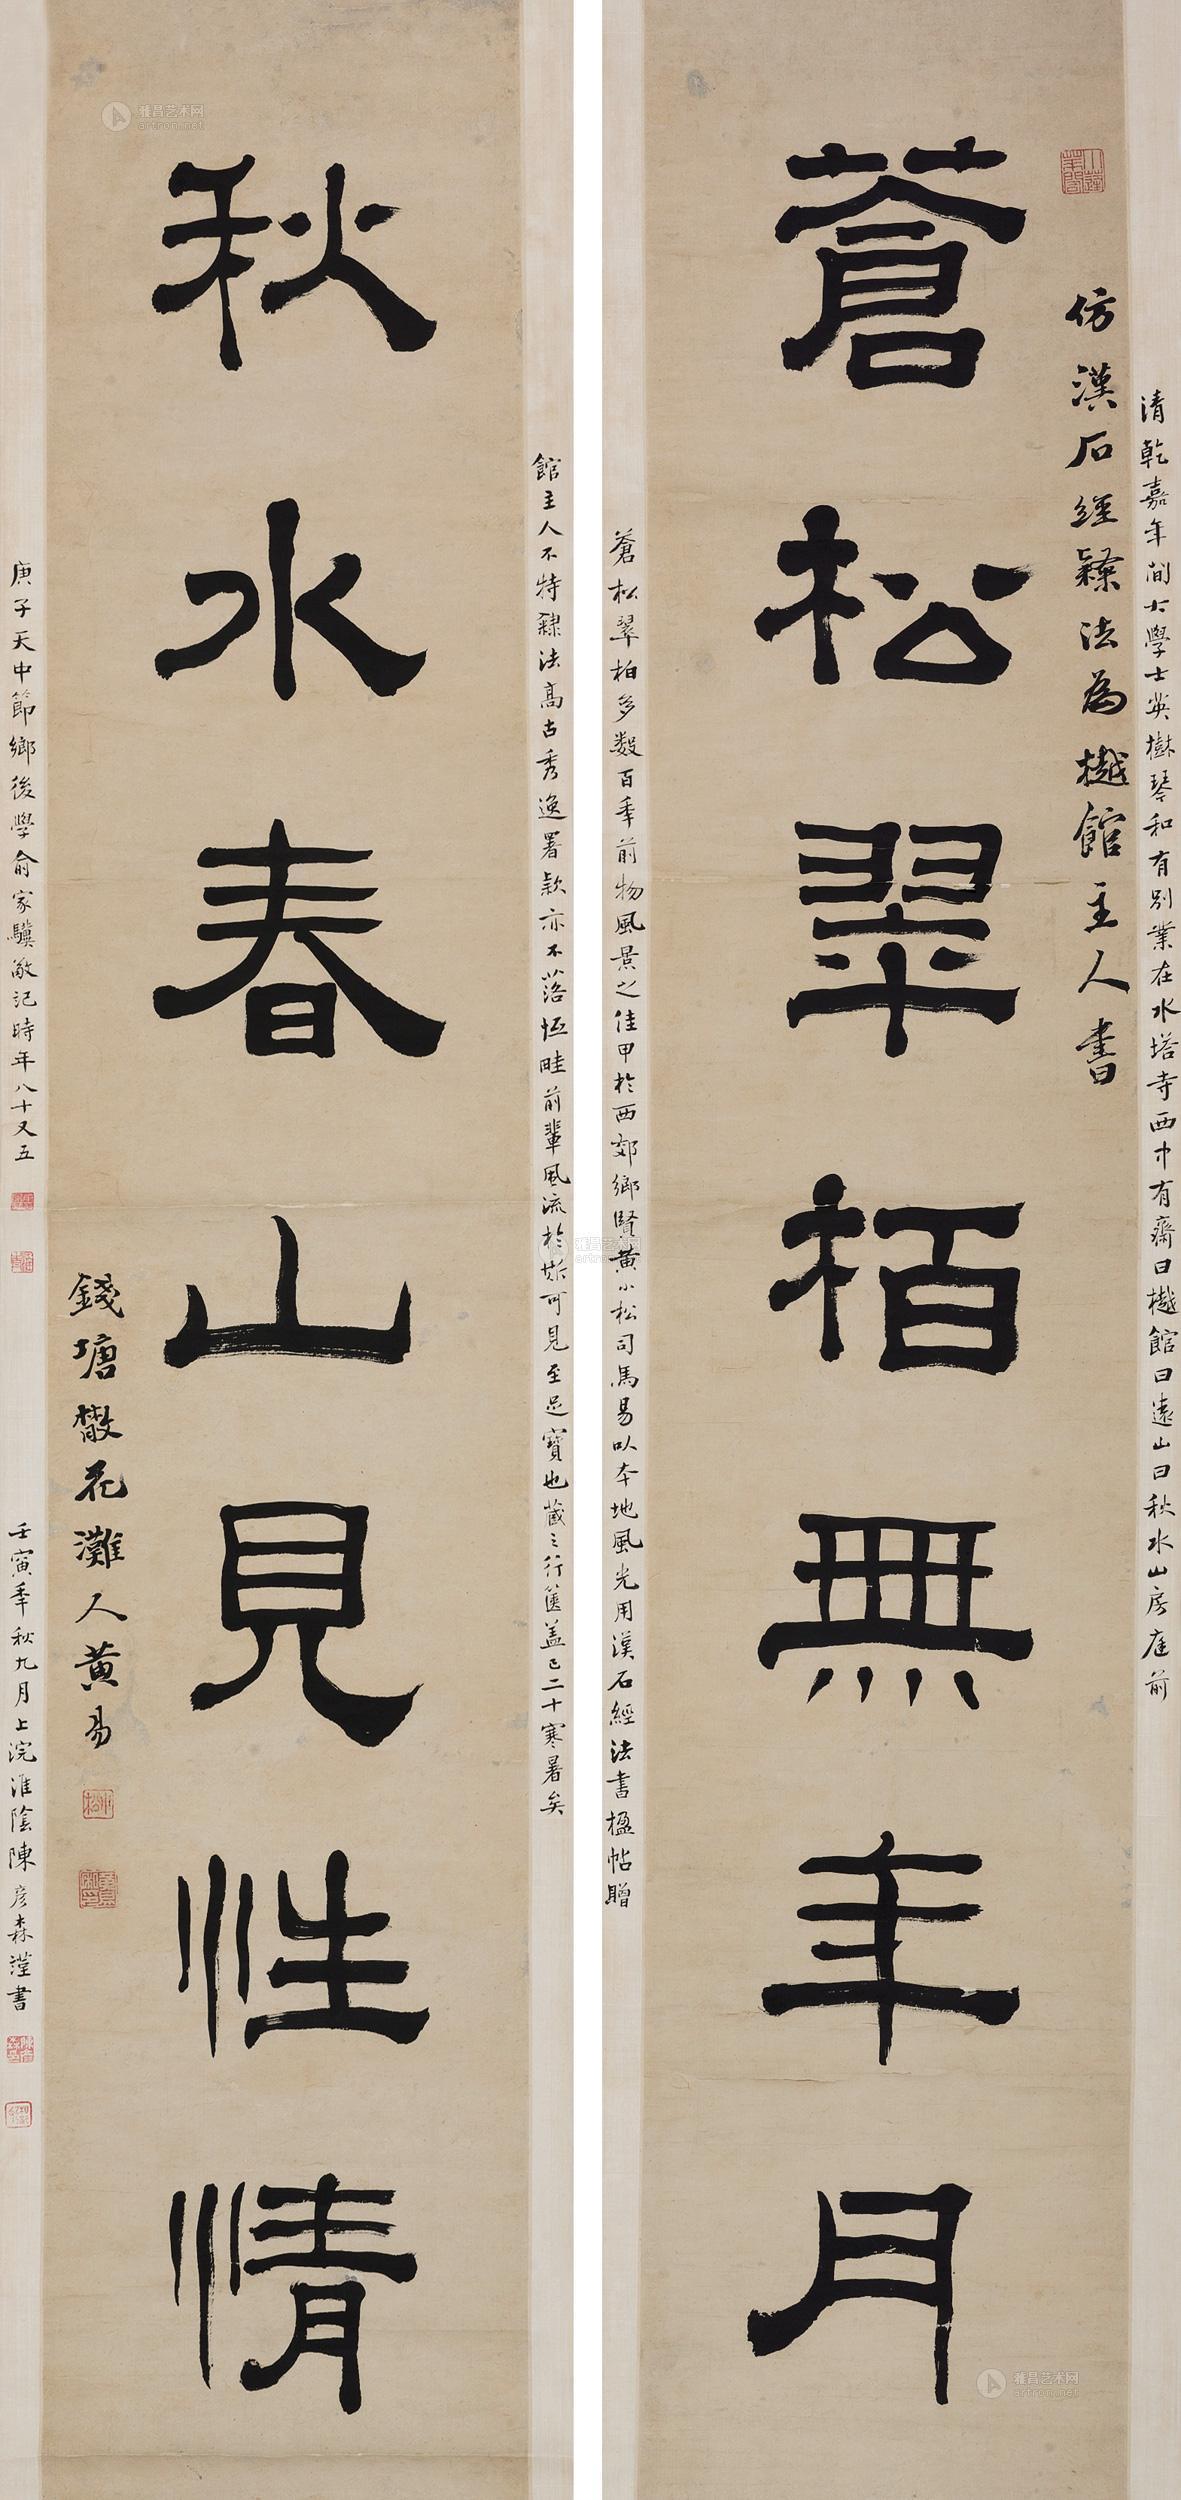 清乾嘉年間大學士英樹琴和有別業在水塔寺西中有齋曰樾館曰遠山曰秋水山房庭前
仿漢石經隸法為樾館主人書
蒼松翠栢無年月
蒼松翠柏多數百年前物風景之佳甲於西郊鄉賢黃小松司馬易以本地風光用漢石經法書楹帖贈
館主人不特隸法高古秀逸署款亦不落恆畦前輩風流於斯可見至足寶也藏之行篋蓋已二十寒暑矣
秋水春山見性情
錢塘散花灘人黃易
庚子天中節鄉後學俞家驥敬記時年八十又五
壬寅年秋九月上浣淮陰陳彥森謹書
小松
雅昌艺术网
artron.net
雅昌艺术网
artron.net
雅昌艺术网
artron.net